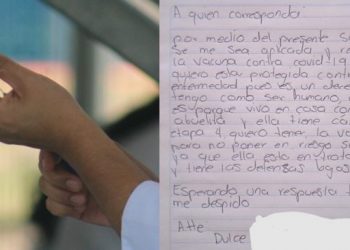 A quien corresponda:
por medio del presente s
se me sea aplicada y re
la vacuna contra covid-19
quiero esta protegida cont
enfermedad pues es un dere
tengo como ser humano,
es porque vivo en casa con
abuelita y ella tiene cá
etapa 4, quiero tener, la va
para no poner en riesgo su
ya que ella esta en trata
y tiene las defensas bajas
Esperando una respuesta
me despido
Atte
Dulce